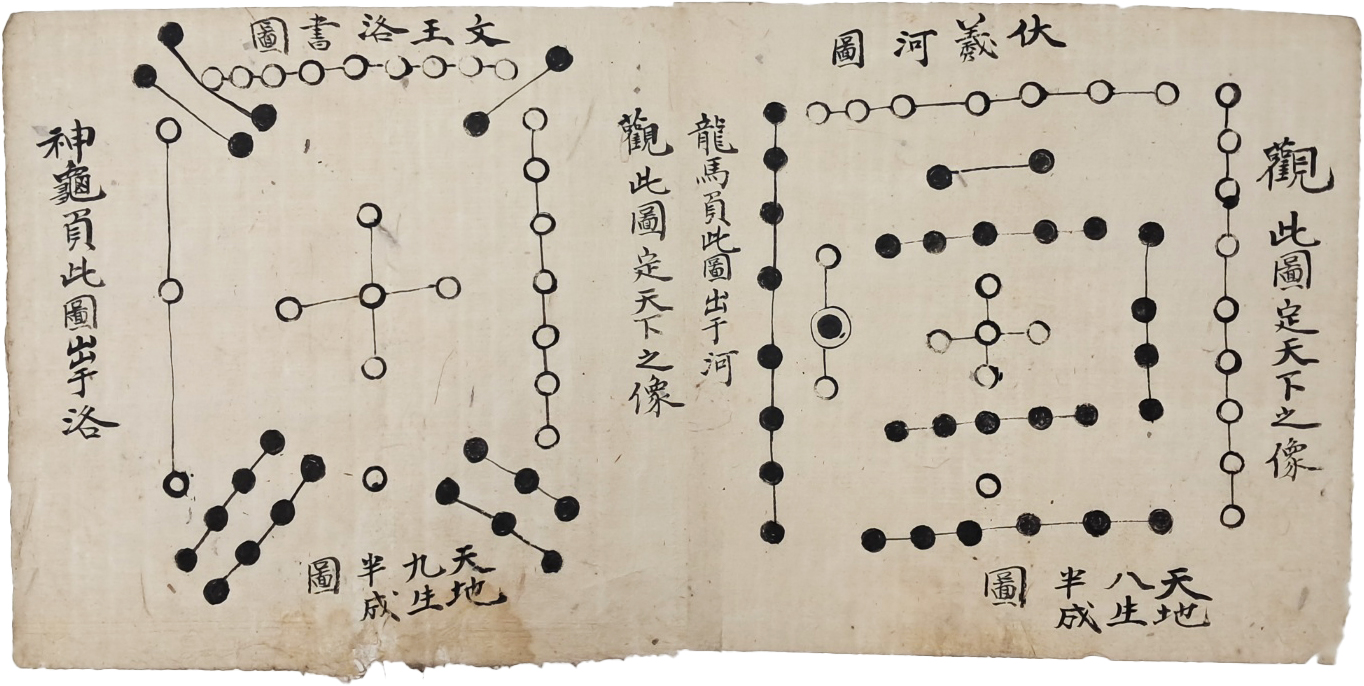 伏羲河圖
觀此圖定天下之像
龍馬負此圖出于河
天地八生半成圖
文王洛書圖
觀此圖定天下之像
神龜負此圖出于洛
天地九生半成圖